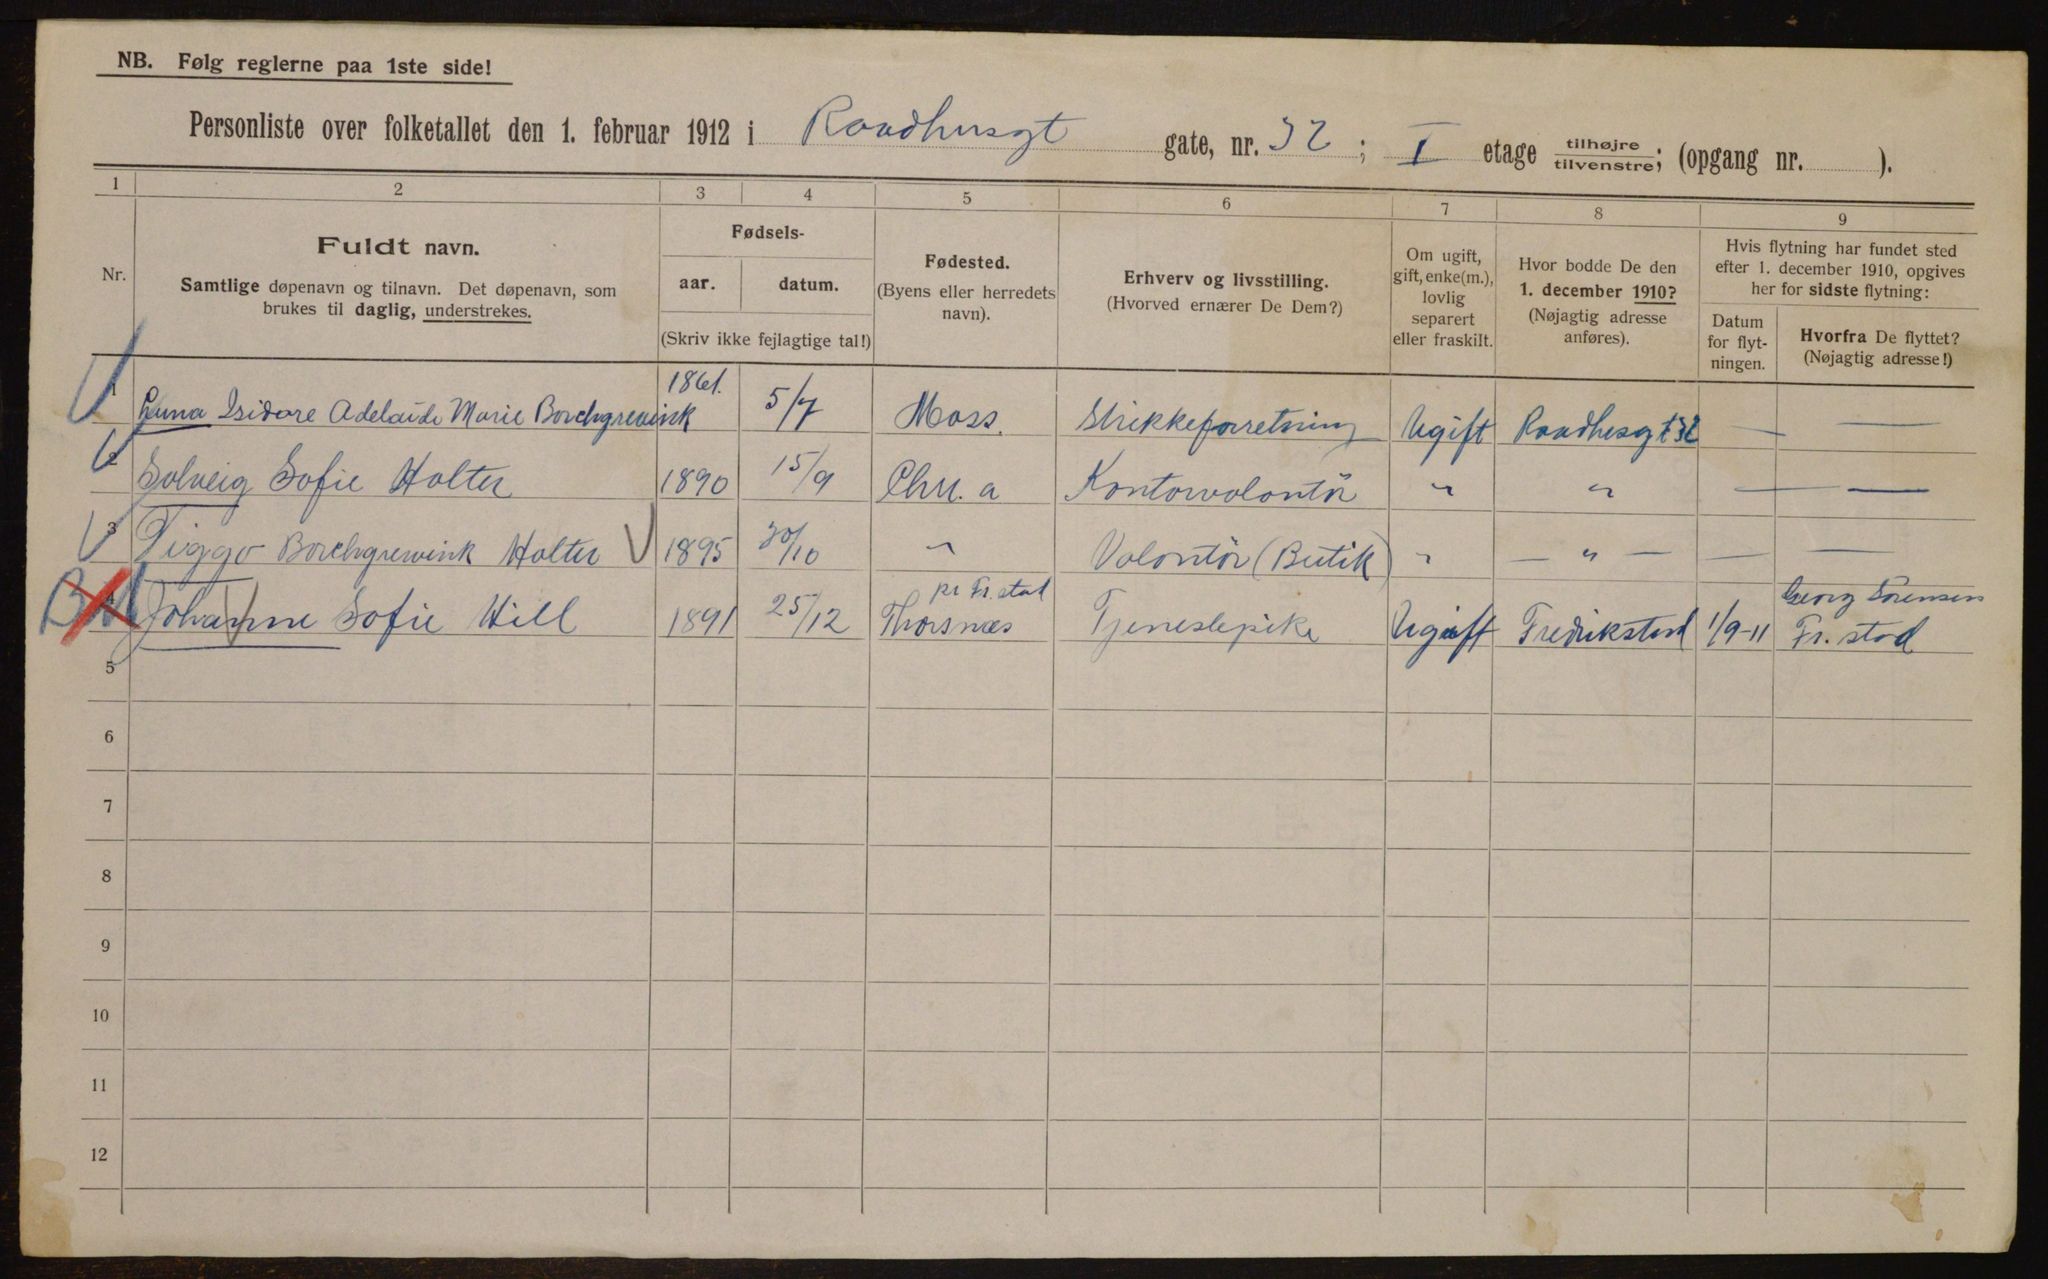 NB. Følg reglerne paa 1ste side!
Personliste over folketallet den 1. februar 1912 i Raadhusgt gate, nr. 32; I etage tilhøjre/tilvenstre; (opgang nr. ).
1 2 3 4 5 6 7 8 9
Nr.
Fuldt navn.
Samtlige døpenavn og tilnavn. Det døpenavn, som
brukes til daglig, understrekes.
Fødsels-
aar. datum.
(Skriv ikke fejlagtige tal!)
Fødested.
(Byens eller herredets
navn).
Erhverv og livsstilling.
(Hvorved ernærer De Dem?)
Om ugift,
gift, enke(m.),
lovlig
separert
eller fraskilt.
Hvor bodde De den
1. december 1910?
(Nøjagtig adresse
anføres).
Hvis flytning har fundet sted
efter 1. december 1910, opgives
her for sidste flytning:
Datum
for flyt-
ningen.
Hvorfra De flyttet?
(Nøjagtig adresse!)
1 Isidore Adelaide Marie Borchgrevink 1861. 5/7 Moss. Strikkeforretning Ugift Raadhusgt 32 — —
2 Solveig Sofie Holter 1890 15/9 Chr. a Kontorvolontör " " — —
3 Viggo Borchgrevink Holter 1895 30/10 " Volontör (Butik) " — " — — —
4 Johanne Sofie Hill 1891 25/12 Thorsnæs pr Fr. stad Tjenestepike Ugift Fredrikstad 1/9-11 Georg Sörensen
Fr. stad
5
6
7
8
9
10
11
12